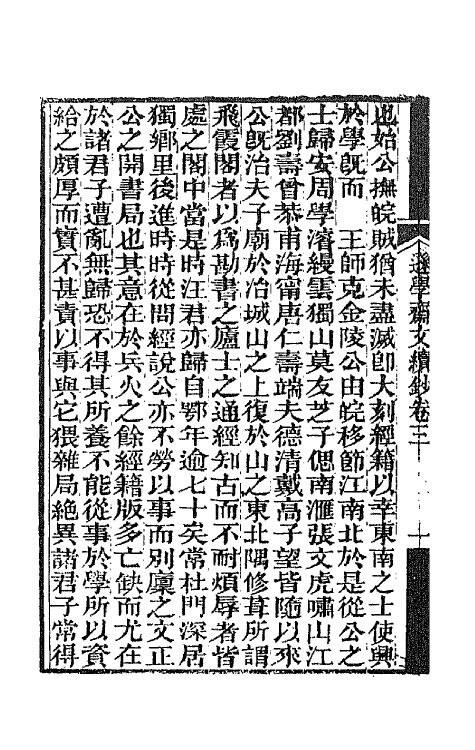 遜學齋文續鈔卷三
也始公撫皖賊猶未盡滅卽大刻經籍以幸東南之士使興
於學旣而　王師克金陵公由皖移節江南北於是從公之
士歸安周學濬縵雲獨山莫友芝子偲南滙張文虎嘯山江
都劉壽曾恭甫海甯唐仁壽端夫德清戴高子望皆隨以來
公旣治夫子廟於冶城山之上復於山之東北隅修葺所謂
飛霞閣者以爲勘書之廬士之通經知古而不耐煩辱者皆
處之閣中當是時汪君亦歸自鄂年逾七十矣常杜門深居
獨鄉里後進時時從問經說公亦不勞以事而別廩之文正
公之開書局也其意在於兵火之餘經籍版多亡缺而尤在
於諸君子遭亂無歸恐不得其所養不能從事於學所以資
給之頗厚而實不甚責以事與它猥雜局絕異諸君子常得